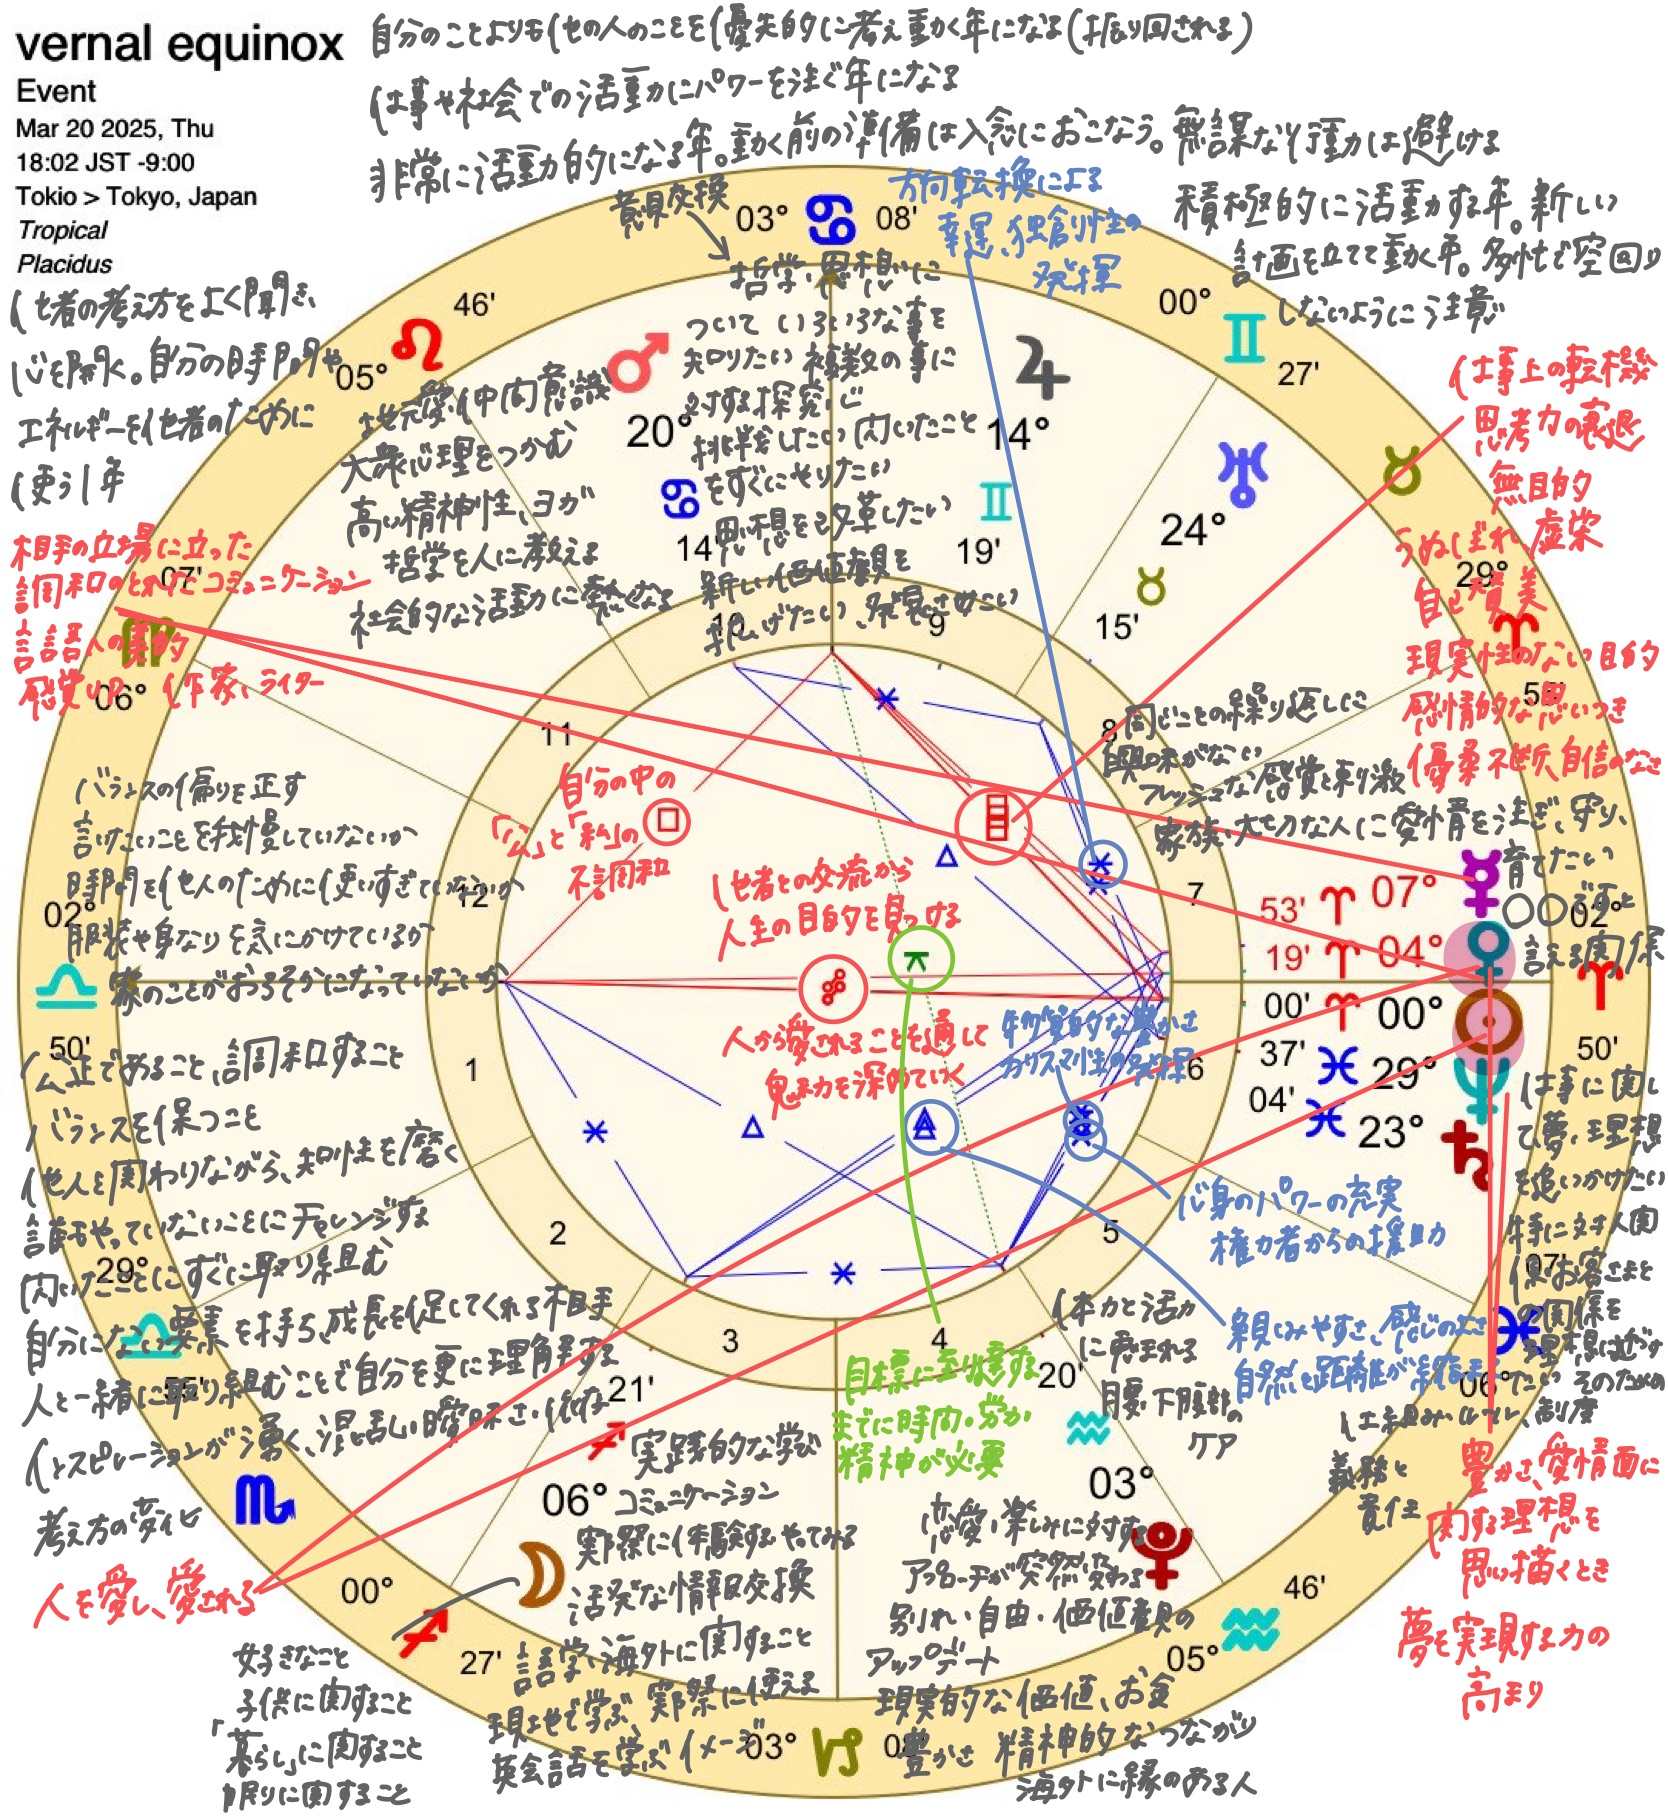 vernal equinox
Event
Mar 20 2025, Thu
18:02 JST -9:00
Tokio > Tokyo, Japan
Tropical
Placidus
自分のことよりも他の人のことを優先的に考え動く年になる(振り回される)
仕事や社会での活動にパワーを注ぐ年になる
非常に活動的になる年。動く前の準備は入念におこなう。無謀な行動は避ける
積極的に活動する年。新しい
計画を立てて動く年。多忙で空回り
しないように注意
他者の考え方をよく聞き、
心を開く。自分の時間や
エネルギーを他者のために
使う1年
相手の立場に立った
調和のとれたコミュニケーション
言語への美的
感覚UP 作家、ライター
意見交換
哲学、思想に
ついて いろいろな事を
知りたい 複数の事に
対する探究心
挑戦したい 閃いたこと
をすぐにやりたい
思想を改革したい
新しい価値観を
拡げたい、発展させたい
方向転換による
幸運、独創性の
発揮
地元愛、仲間意識
大衆心理をつかむ
高い精神性、ヨガ
哲学を人に教える
社会的な活動に熱くなる
仕事上の転機
思考力の衰退
無目的
虚栄
うぬぼれ
自己賛美
現実性のない目的
感情的な思いつき
優柔不断、自信のなさ
同じことの繰り返しに
興味がない
フレッシュな感覚と刺激
家族、大切な人に愛情を注ぎ、守り、
育てたい
〇〇ですと
言える関係
バランスの偏りを正す
言いたいことを我慢していないか
時間を他人のために使いすぎていないか
服装や身なりを気にかけているか
家のことがおろそかになっていないか
自分の中の
「公」と「私」の
不調和
他者との交流から
人生の目的を見つける
人から愛されることを通して
魅力を深めていく
物質的な豊かさ
カリスマ性の発揮
公正であること、調和すること
バランスを保つこと
他人と関わりながら、知性を磨く
誰もやっていないことにチャレンジする
閃いたことにすぐに取り組む
自分にない要素を持ち、成長を促してくれる相手
人と一緒に取り組むことで自分を更に理解する
インスピレーションが湧く、混乱しい曖昧さ・
考え方の変化
人を愛し、愛される
心身のパワーの充実
権力者からの援助
親しみやすさ、感じのよさ
自然と距離が縮まる
仕事に関し
て夢、理想
を追いかけたい
特に対人関
係、お客さまと
の関係を
理想に近づけ
たい そのための
仕組み、ルール、制度
義務と
責任
体力と活力
に恵まれる
腰、下腹部の
ケア
目標に到達する
までに時間・労力
精神が必要
豊かさ、愛情面に
関する理想を
思い描くとき
夢を実現する力の
高まり
実践的な学び
コミュニケーション
実際に体験する、やってみる
活発な情報交換
語学、海外に関すること
現地で学ぶ、実際に使える
英会話を学ぶイメージ
好きなこと
子供に関すること
「暮らし」に関すること
眠りに関すること
恋愛、楽しみに対する
アプローチが突然変わる
別れ・自由・価値観の
アップデート
現実的な価値、お金
豊かさ 精神的なつながり
海外に縁のある人
03° 08'
00° 27'
29°
02° 50'
07'
05° 46'
00° 27'
29°
02° 50'
06° 07'
05° 46'
20° 14'
14° 19'
24° 15'
53' 07°
19' 04°
00' 00°
37' 29°
04' 23°
03° 20'
06° 21'
03°
1
2
3
4
5
6
7
8
9
10
11
12